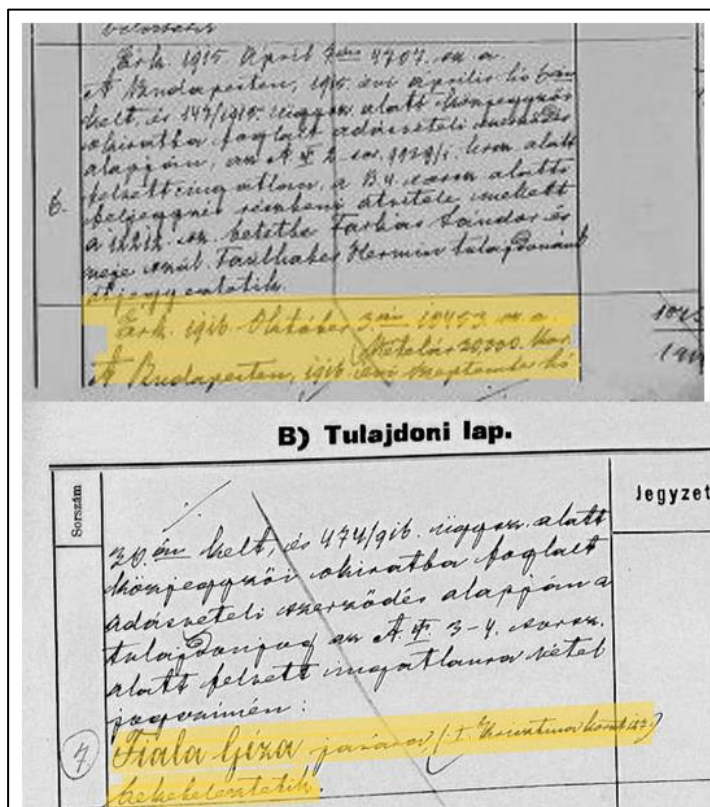 Érk. 1915. Április 7én 4707. sz. a.
A Budapesten, 1915. évi április hó 6án
kelt, és 147/1915. ügysz. alatt közjegyzői
okiratba foglalt adásvételi szerződés
alapján, az A I 2. sor. 9129/1. hrsz. alatt
felvett ingatlan, a B 4. sorsz. alatti
bejegyzés részbeni átvitele mellett
6.
a 12212. sz. betétbe Farkas Sándor és
neje szül. Faulhaber Hermin tulajdonául
átjegyeztetik.
Érk. 1916. Október 3.án 10453. sz. a.
(Vételár 20,000. kor
A Budapesten, 1916. évi szeptember hó
B) Tulajdoni lap.
Sorszám
Jegyzet
30.án kelt, és 474/916. ügysz. alatt
közjegyzői okiratba foglalt
adásvételi szerződés alapján a
tulajdonjog az A. I. 3-4. sorsz.
alatt felvett ingatlanra vétel
jogcímén:
7.
Fiala Géza javára (I. Krisztina körút
bekebeleztetik.